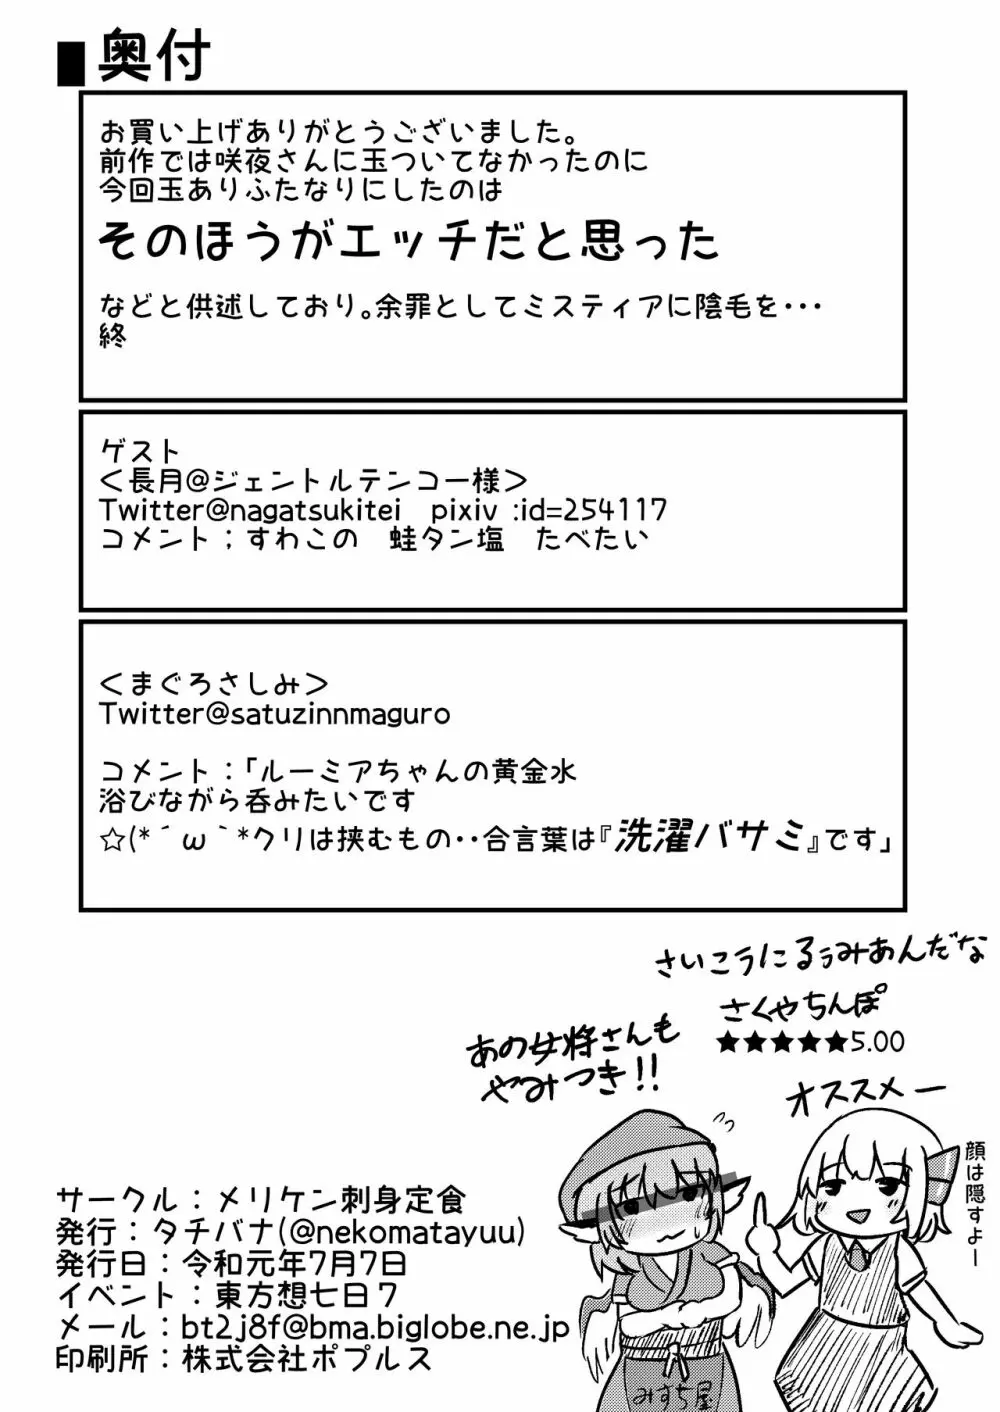 奥付
お買い上げありがとうございました。
前作では咲夜さんに玉ついてなかったのに
今回玉ありふたなりにしたのは
そのほうがエッチだと思った
などと供述しており。余罪としてミスティアに陰毛を・・・
終
ゲスト
＜長月@ジェントルテンコー様＞
Twitter@nagatsukitei　pixiv :id=254117
コメント；すわこの　蛙タン塩　たべたい
＜まぐろさしみ＞
Twitter@satuzinnmaguro
コメント：「ルーミアちゃんの黄金水
浴びながら呑みたいです
☆(*´ω｀*クリは挟むもの・・合言葉は『洗濯バサミ』です」
さいこうにるぅみあんだな
さくやちんぽ
★★★★★5.00
あの女将さんも
やみつき!!
オススメー
顔は隠すよー
サークル：メリケン刺身定食
発行：タチバナ(@nekomatayuu)
発行日：令和元年7月7日
イベント：東方想七日７
メール：bt2j8f@bma.biglobe.ne.jp
印刷所：株式会社ポプルス
みすち屋